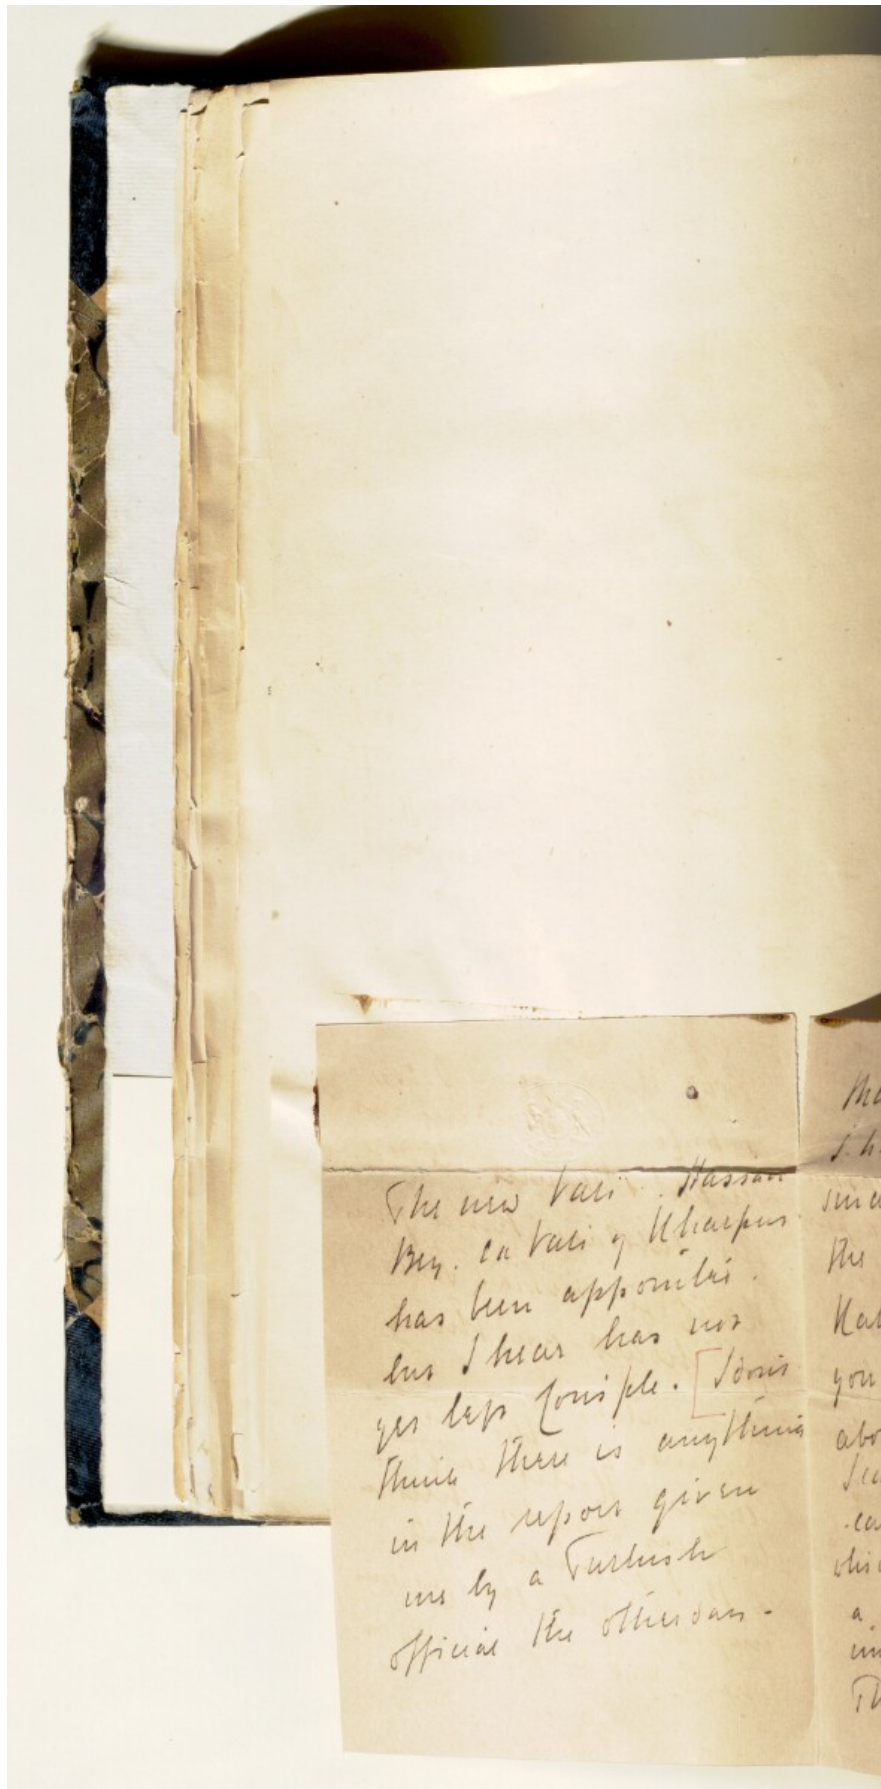 The new Vali. Hassan
Bey. Ex Vali of Kharput
has been appointed.
but I hear has not
yet left Consple. [I don't
think there is anything
in the report given
me by a Turkish
official the other day -
the
you
a